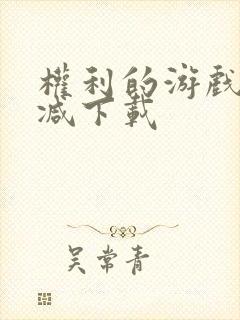 權利的游戲
减下載
吴常青